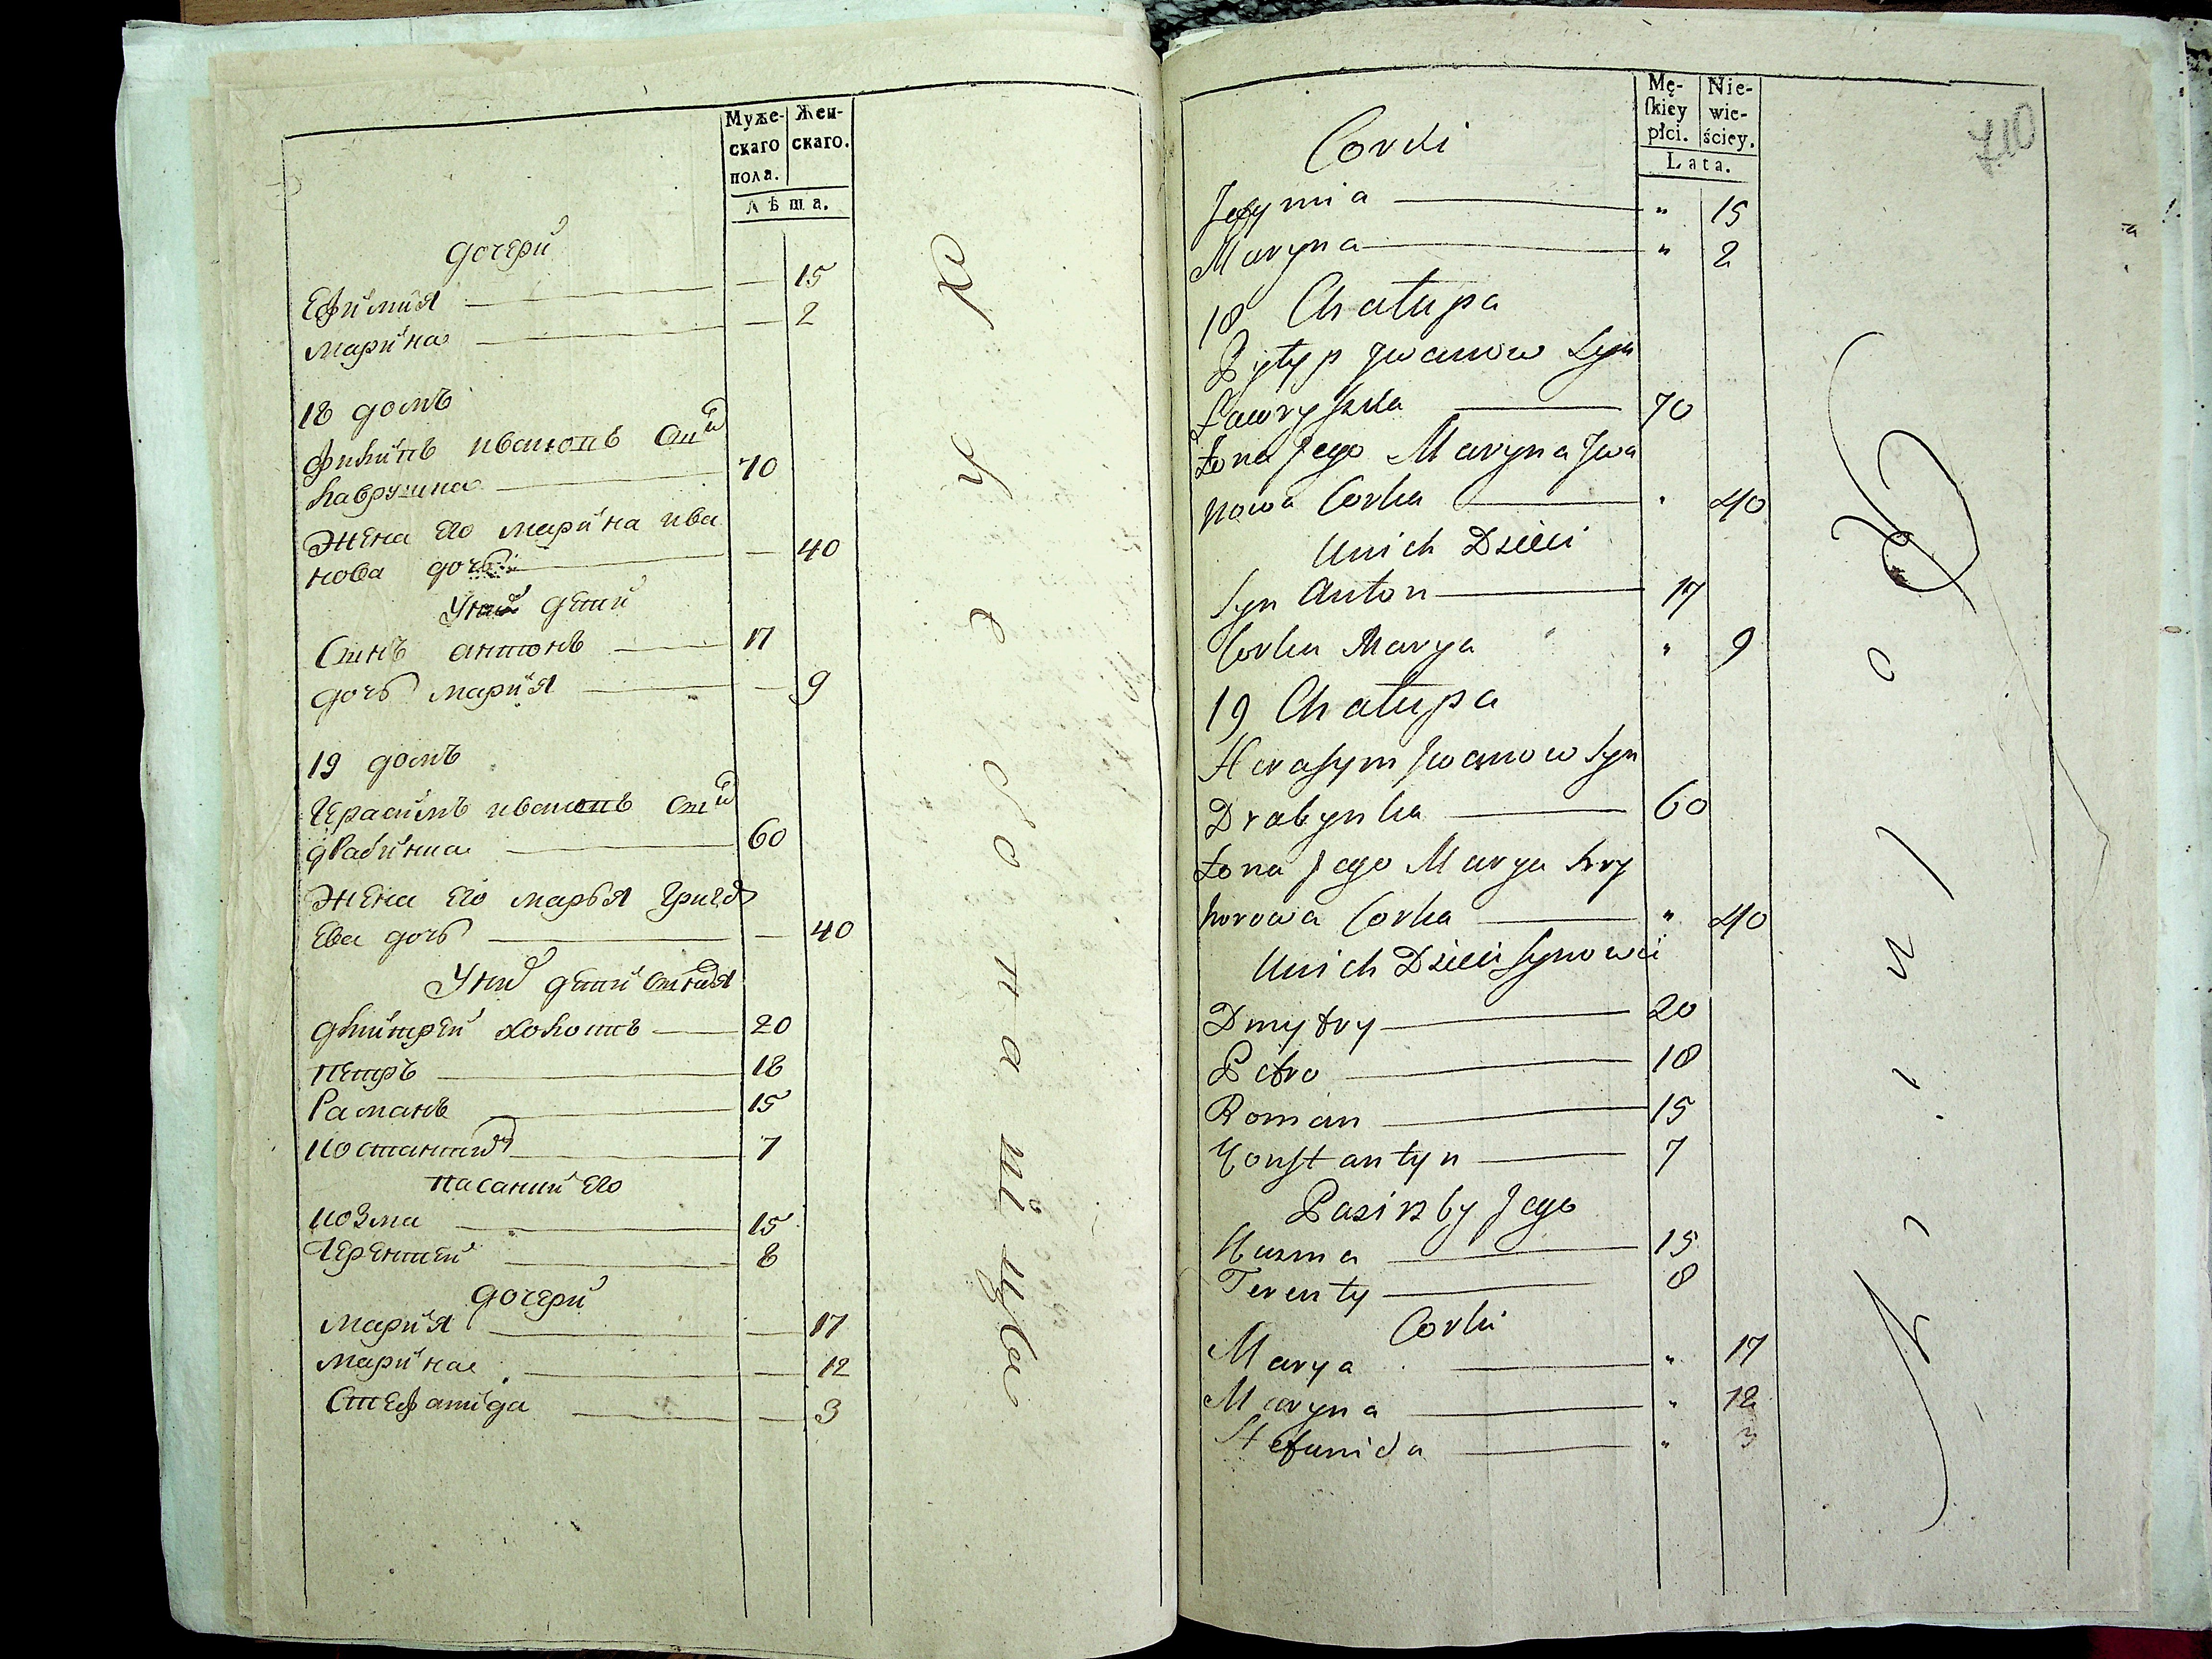 Муже-
скаго
пола.
Жен-
скаго.
Лѣта.
дочери
Ефимия — — 15
Марина — — 2
18 домъ
Филипъ ивановъ
лаврушка — 70
Жена его марина ива
нова дочь — — 40
дети
Синъ антонъ — 17
дочь мария — — 9
19 домъ
Герасимъ ивановъ
драбинка — 60
Жена его марья григор
ева дочь — — 40
Уних дети синия
дмитрей холостъ — 20
петръ — 18
Раманъ — 15
костантин — 7
пасинки его
козма — 15
Терентей — 8
дочери
Мария — — 17
Марина — — 12
Стефанида — — 3
Mę-
ſkiey
płci.
Nie-
wie-
ściey.
Lata.
710
Corki
Jefymia — " 15
Maryna — " 2
18 Chałupa
Pylyp Jwanow Syn
Ławryszka — 70
Żona Jego Maryna Jwa
nowa Corka — " 40
Unich Dzieci
Syn Anton — 17
Corka Marya " 9
19 Chałupa
Harasym Jwanow Syn
Drabynka — 60
Żona Jego Marya Hry
horowa Corka — " 40
Unich Dzieci Synowie
Dmytry — 20
Petro — 18
Roman — 15
Konstantyn — 7
Pasirzby Jego
Kuzma — 15
Terenty — 8
Corki
Marya — " 17
Maryna — " 12
Stefanida — " 3